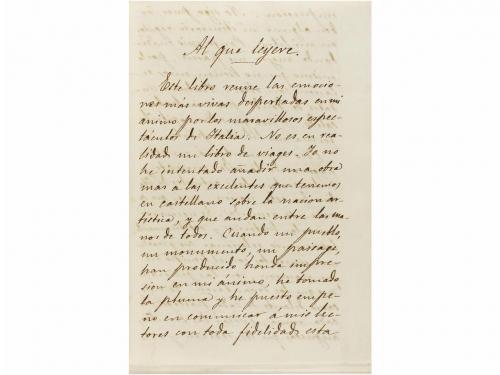 Al que leyere.
Este libro reune las emocio-
nes más vivas despertadas en mi
ánimo por los maravillosos espec-
táculos de Italia. No es en rea-
lidad un libro de viages. Yo no
he intentado añadir una obra
mas á las excelentes que tenemos
en castellano sobre la nacion ar-
tística, y que andan entre las ma-
nos de todos. Cuando un pueblo,
un monumento, un paisage,
han producido honda impre-
sion en mi ánimo, he tomado
la pluma y he puesto empe-
ño en comunicar á mis lec-
tores con toda fidelidad esta